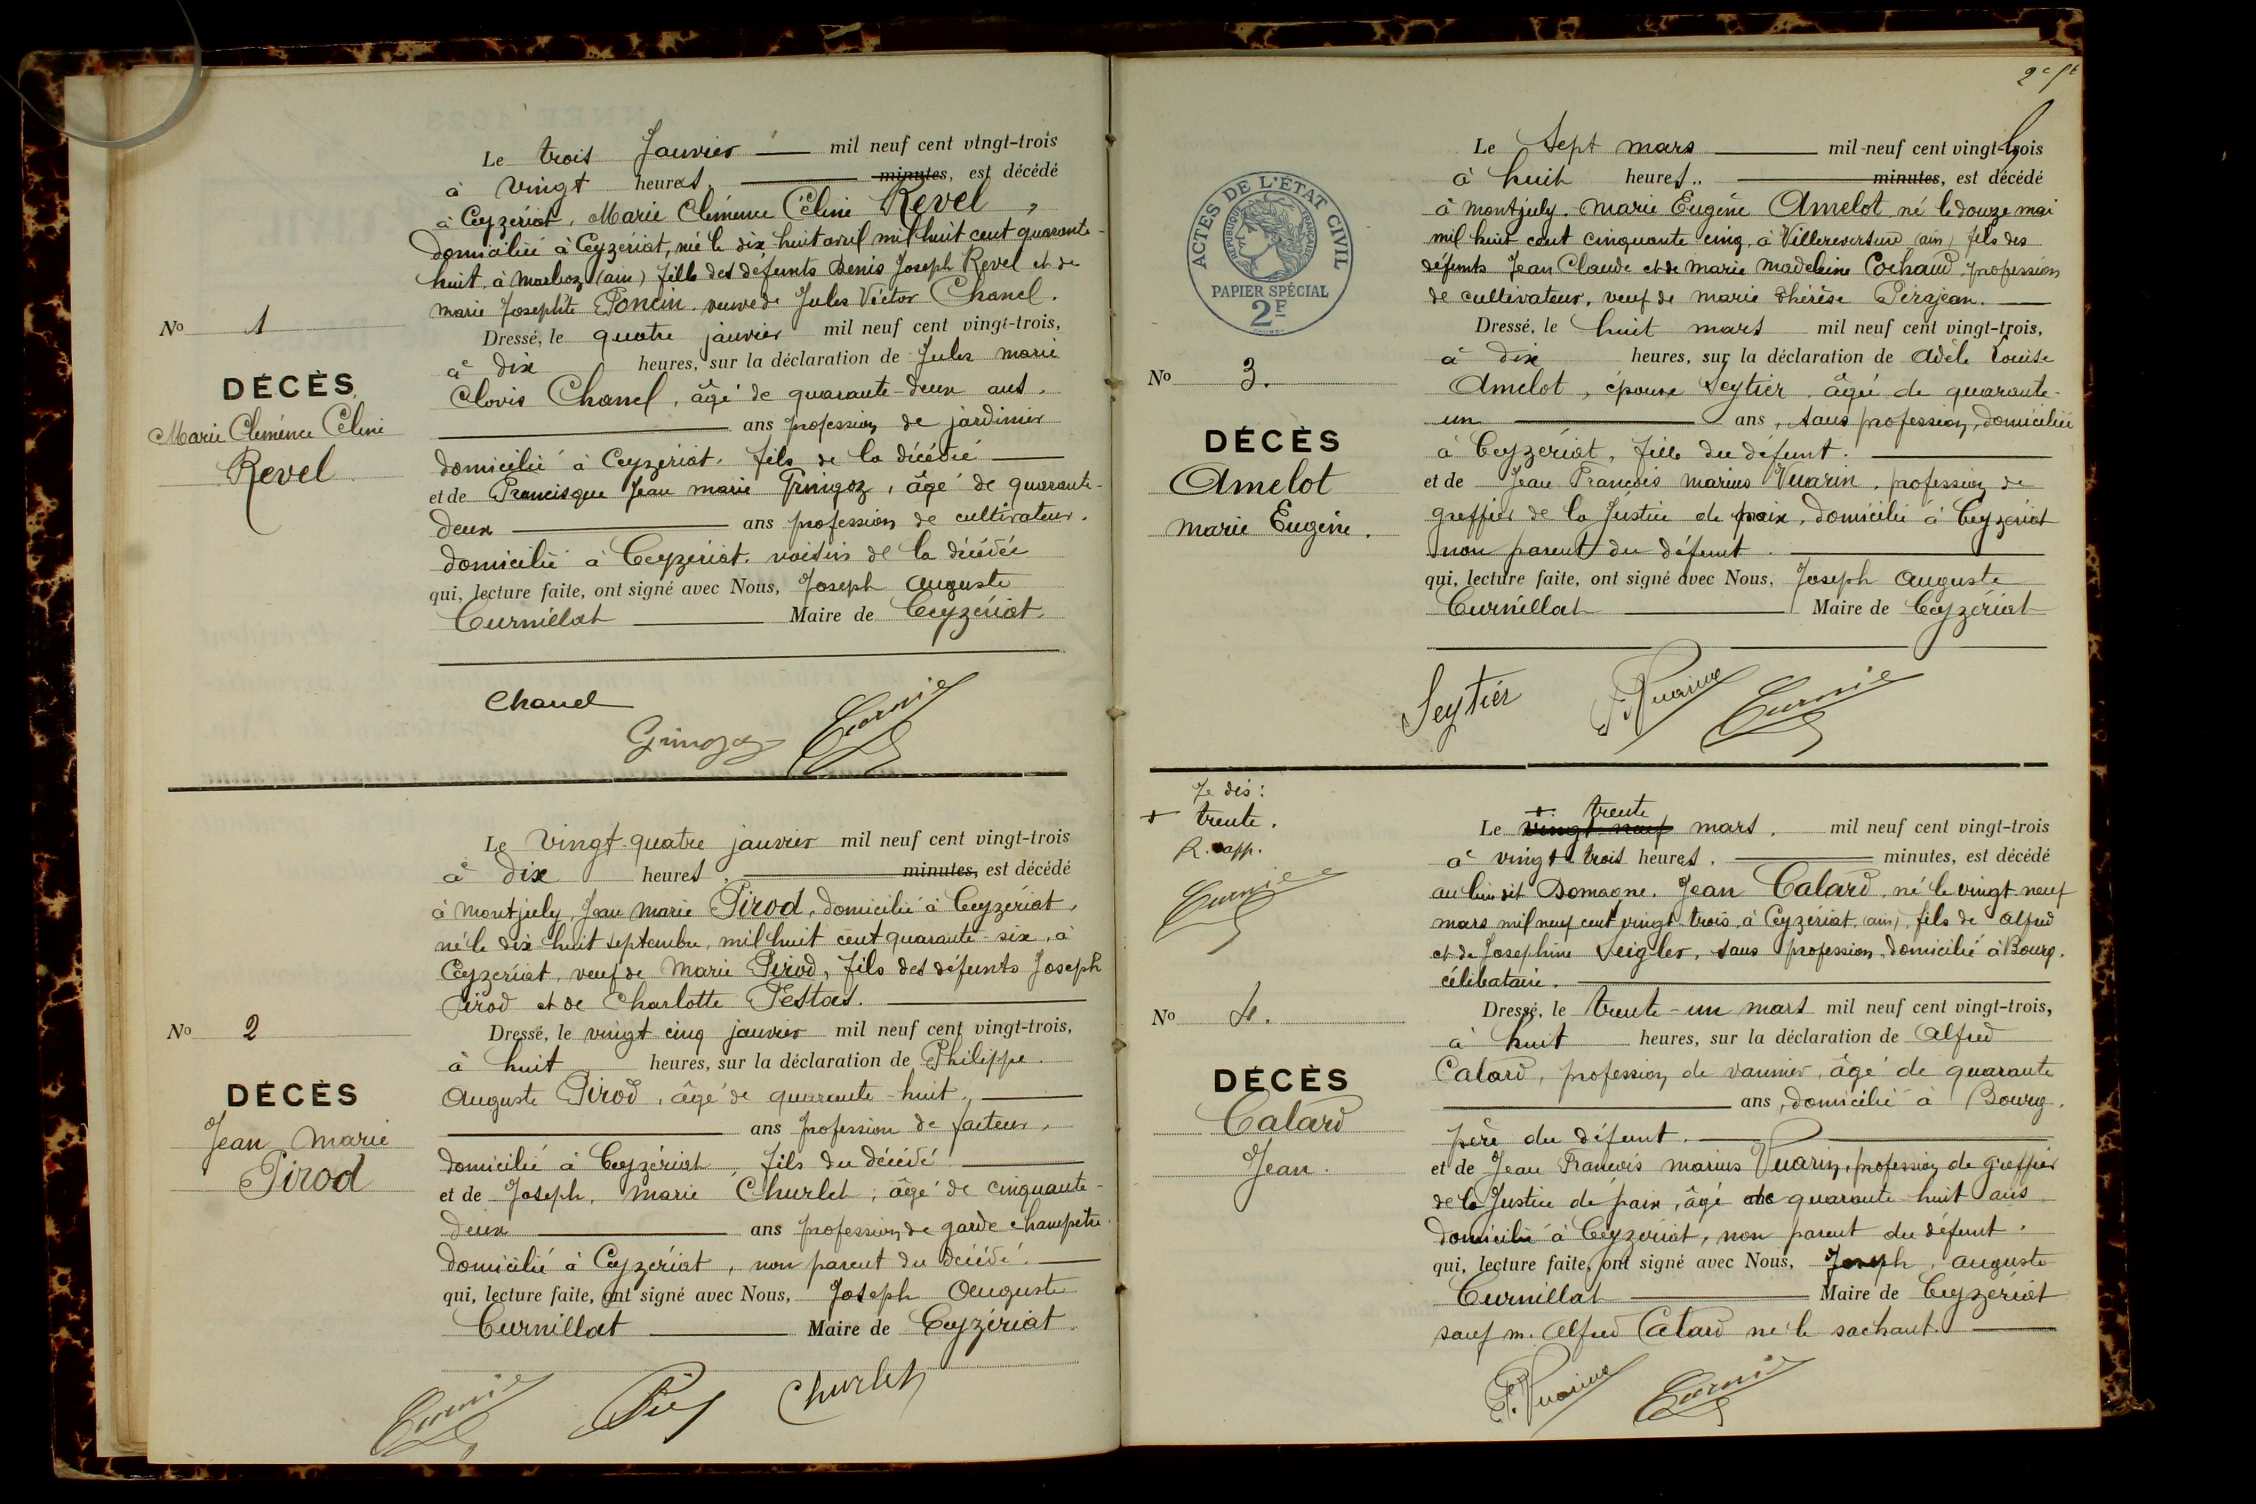 Le trois Janvier mil neuf cent vingt-trois
à vingt heures. minutes, est décédé
à Ceyzériat, Marie Clémence Céline Revel,
domiciliée à Ceyzériat, née le dix-huit avril mil huit cent quarante-
huit, à Marboz (ain) fille des défunts Denis Joseph Revel et de
Marie Josephte Poncin. veuve de Jules Victor Chanel.
Dressé, le quatre janvier mil neuf cent vingt-trois,
à dix heures, sur la déclaration de Jules Marie
Clovis Chanel, âgé de quarante-deux ans.
ans profession de jardinier
domicilié à Ceyzériat. fils de la décédée
et de Francisque Jean Marie Gringoz, âgé de quarante-
deux ans profession de cultivateur.
domicilié à Ceyzériat. voisin de la décédée
qui, lecture faite, ont signé avec Nous, Joseph Auguste
Curnillat Maire de Ceyzériat.
No 1
DÉCÈS
Marie Clémence Céline
Revel
Chanel
Gringoz
Le vingt-quatre janvier mil neuf cent vingt-trois
à dix heures, minutes, est décédé
à Montjuly, Jean Marie Pirod, domicilié à Ceyzériat,
né le dix huit septembre, mil huit cent quarante-six, à
Ceyzériat, veuf de Marie Pirod, fils des défunts Joseph
Pirod et de Charlotte Testas.
Dressé, le vingt cinq janvier mil neuf cent vingt-trois,
à huit heures, sur la déclaration de Philippe
Auguste Pirod, âgé de quarante-huit
ans profession de facteur.
domicilié à Ceyzériat, fils du décédé
et de Joseph, Marie Churlet, âgé de cinquante-
deux ans profession de garde champêtre.
domicilié à Ceyzériat, non parent du décédé.
qui, lecture faite, ont signé avec Nous, Joseph Auguste
Curnillat Maire de Ceyzériat.
No 2
DÉCÈS
Jean Marie
Pirod
Churlet
ACTES DE L'ÉTAT CIVIL
RÉPUBLIQUE FRANÇAISE
PAPIER SPÉCIAL
2F
Le Sept mars mil neuf cent vingt-trois
à huit heures.. minutes, est décédé
à Montjuly. Marie Eugène Amelot né le douze mai
mil huit cent cinquante cinq, à Villereversure (ain) fils des
défunts Jean Claude et de Marie Madeleine Cochaud, profession
de cultivateur, veuf de Marie Thérèse Pirajean.
Dressé, le huit mars mil neuf cent vingt-trois,
à dix heures, sur la déclaration de Adèle Louise
Amelot, épouse Seytier, âgée de quarante-
un ans, sans profession, domiciliée
à Ceyzériat, fille du défunt.
et de Jean François Marius Vuarin, profession de
greffier de la Justice de paix, domicilié à Ceyzériat
non parent du défunt.
qui, lecture faite, ont signé avec Nous, Joseph Auguste
Curnillat Maire de Ceyzériat
No 3.
DÉCÈS
Amelot
Marie Eugène.
Seytier
Je dis :
+ trente.
R. app.
+ trente
Le vingt neuf mars. mil neuf cent vingt-trois
à vingt trois heures. minutes, est décédé
au lieu dit Domagne. Jean Calard, né le vingt neuf
mars mil neuf cent vingt-trois, à Ceyzériat (ain), fils de Alfred
et de Josephine Seigler, sans profession, domicilié à Bourg.
célibataire.
Dressé, le trente-un mars mil neuf cent vingt-trois,
à huit heures, sur la déclaration de Alfred
Calard, profession de vannier, âgé de quarante
ans, domicilié à Bourg.
père du défunt.
et de Jean François Marius Vuarin, profession de greffier
de la Justice de paix, âgé de quarante huit ans
domicilié à Ceyzériat, non parent du défunt.
qui, lecture faite, ont signé avec Nous, Joseph, Auguste
Curnillat Maire de Ceyzériat
sauf m. Alfred Calard ne le sachant.
No 4.
DÉCÈS
Calard
Jean.